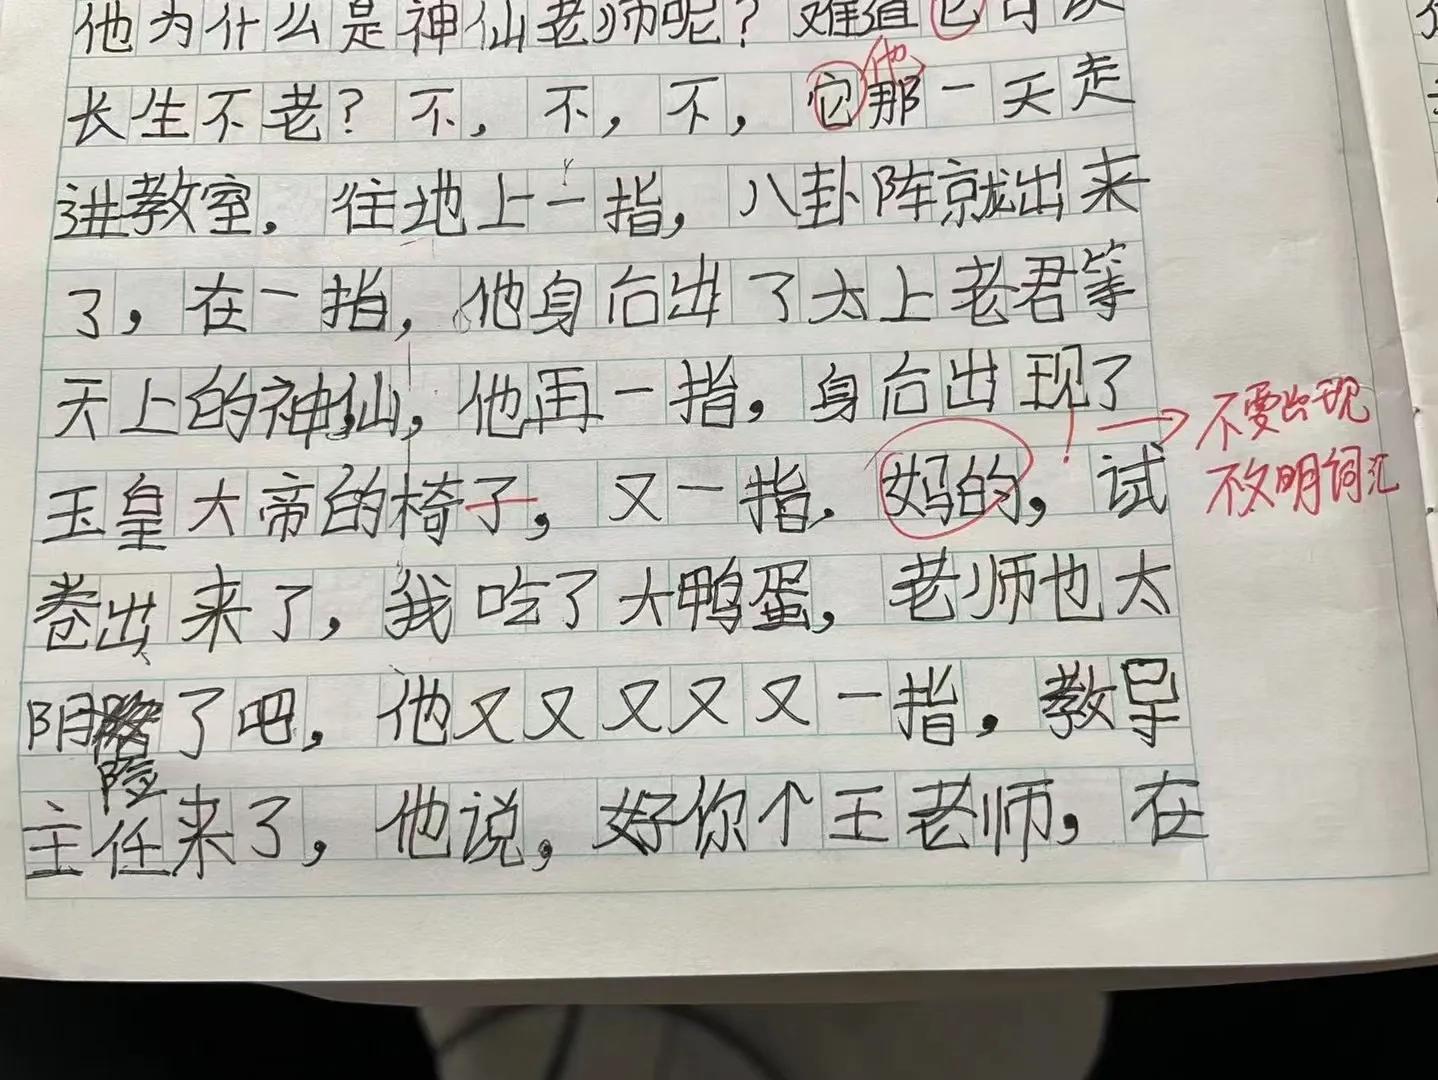 他为什么是神仙老师呢？难道它可以
长生不老？不，不，不，它那一天走
他
进教室，往地上一指，八卦阵就出来
了，在一指，他身后出了太上老君等
天上的神仙，他再一指，身后出现了
不要出现
玉皇大帝的椅子，又一指，妈的，试
不文明词汇
卷出来了，我吃了大鸭蛋，老师也太
阴险了吧，他又又又又又一指，教导
主任来了，他说，好你个王老师，在